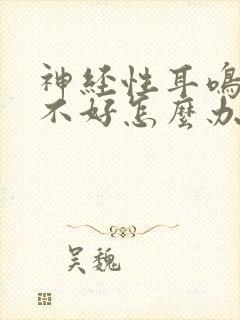 神経性耳鳴
不好怎麼办
吴魏